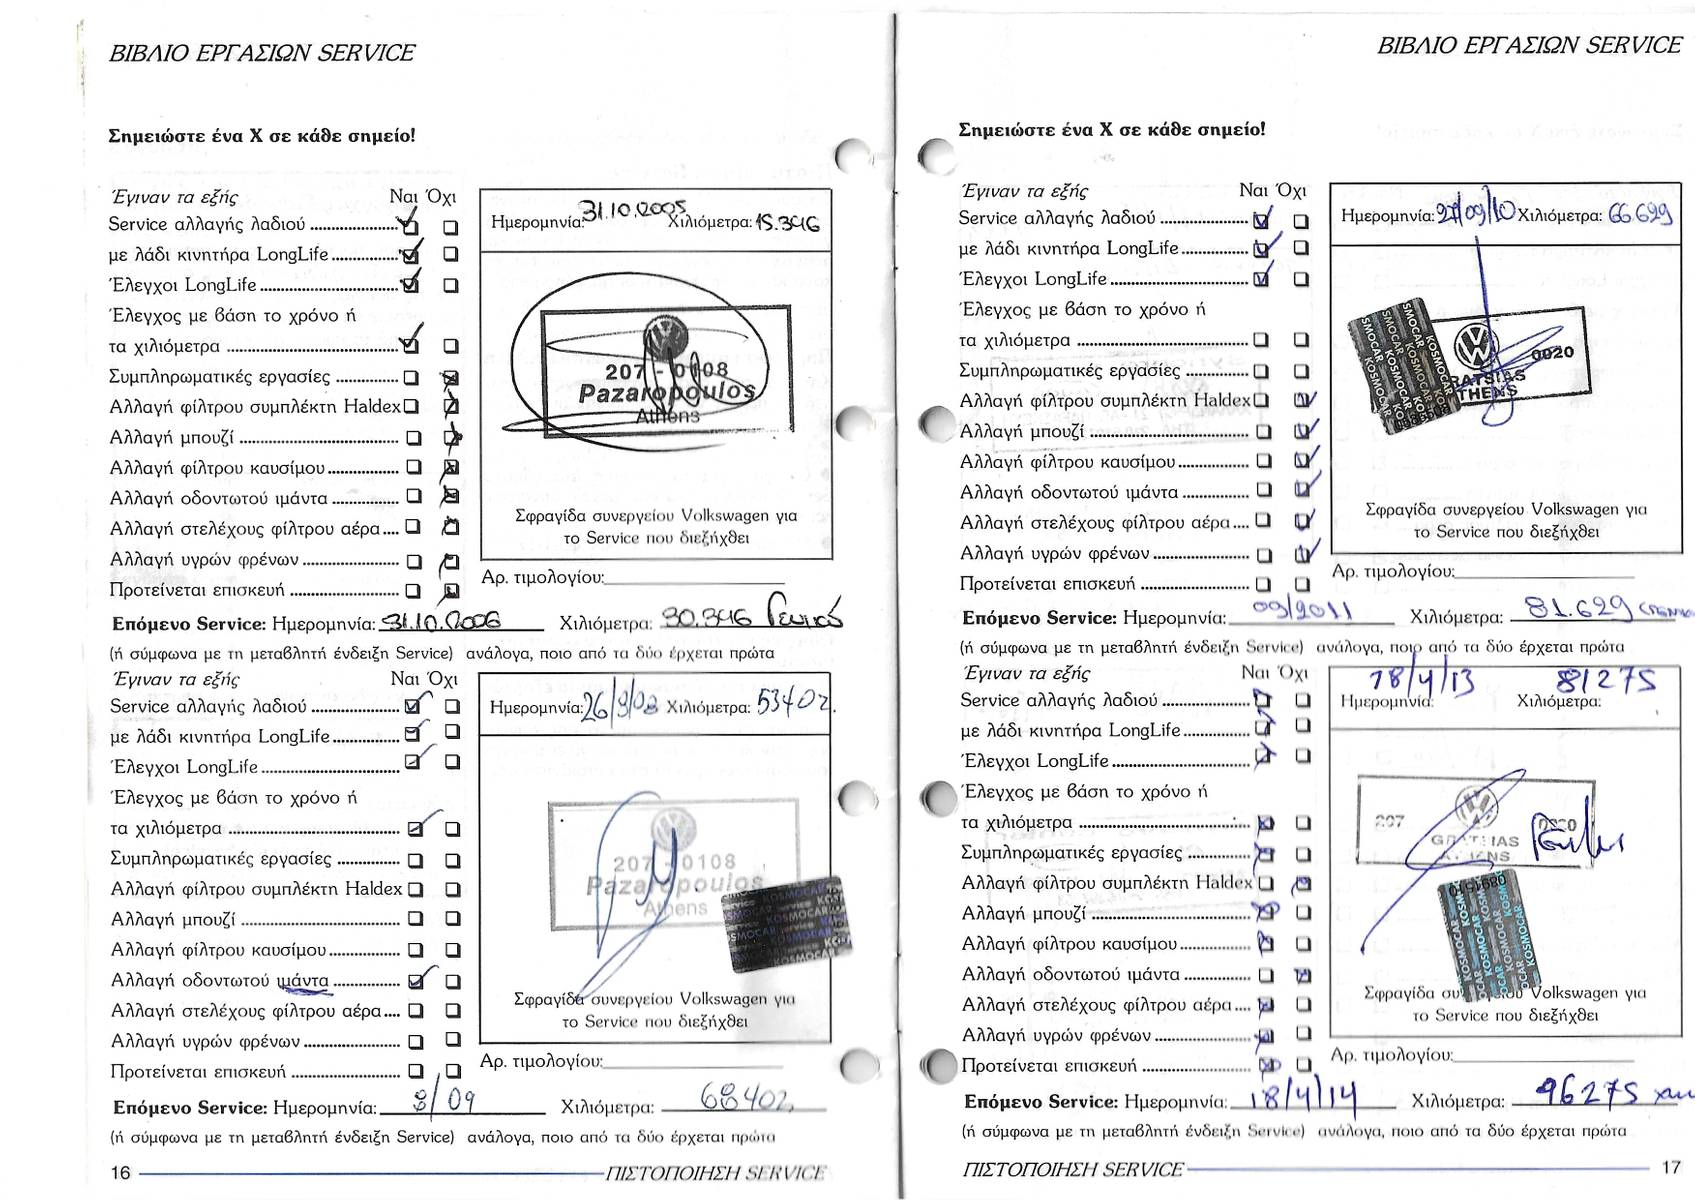 ΒΙΒΛΙΟ ΕΡΓΑΣΙΩΝ SERVICE
Σημειώστε ένα Χ σε κάθε σημείο!
Έγιναν τα εξής Ναι Όχι
Service αλλαγής λαδιού
με λάδι κινητήρα LongLife
Έλεγχοι LongLife
Έλεγχος με βάση το χρόνο ή
τα χιλιόμετρα
Συμπληρωματικές εργασίες
Αλλαγή φίλτρου συμπλέκτη Haldex
Αλλαγή μπουζί
Αλλαγή φίλτρου καυσίμου
Αλλαγή οδοντωτού ιμάντα
Αλλαγή στελέχους φίλτρου αέρα
Αλλαγή υγρών φρένων
Προτείνεται επισκευή
Ημερομηνία: 31.10.2005 Χιλιόμετρα: 15.346
207 - 0108
Pazaropoulos
Athens
Σφραγίδα συνεργείου Volkswagen για
το Service που διεξήχθει
Αρ. τιμολογίου:
Επόμενο Service: Ημερομηνία: 31.10.2006 Χιλιόμετρα: 30.346
(ή σύμφωνα με τη μεταβλητή ένδειξη Service) ανάλογα, ποιο από τα δύο έρχεται πρώτα
Έγιναν τα εξής Ναι Όχι
Service αλλαγής λαδιού
με λάδι κινητήρα LongLife
Έλεγχοι LongLife
Έλεγχος με βάση το χρόνο ή
τα χιλιόμετρα
Συμπληρωματικές εργασίες
Αλλαγή φίλτρου συμπλέκτη Haldex
Αλλαγή μπουζί
Αλλαγή φίλτρου καυσίμου
Αλλαγή οδοντωτού ιμάντα
Αλλαγή στελέχους φίλτρου αέρα
Αλλαγή υγρών φρένων
Προτείνεται επισκευή
Ημερομηνία: Χιλιόμετρα: 53402
207 - 0108
Pazaropoulos
Athens
KOSMOCAR
Σφραγίδα συνεργείου Volkswagen για
το Service που διεξήχθει
Αρ. τιμολογίου:
Επόμενο Service: Ημερομηνία: 8/09 Χιλιόμετρα: 68402
(ή σύμφωνα με τη μεταβλητή ένδειξη Service) ανάλογα, ποιο από τα δύο έρχεται πρώτα
16 ΠΙΣΤΟΠΟΙΗΣΗ SERVICE
ΒΙΒΛΙΟ ΕΡΓΑΣΙΩΝ SERVICE
Σημειώστε ένα Χ σε κάθε σημείο!
Έγιναν τα εξής Ναι Όχι
Service αλλαγής λαδιού
με λάδι κινητήρα LongLife
Έλεγχοι LongLife
Έλεγχος με βάση το χρόνο ή
τα χιλιόμετρα
Συμπληρωματικές εργασίες
Αλλαγή φίλτρου συμπλέκτη Haldex
Αλλαγή μπουζί
Αλλαγή φίλτρου καυσίμου
Αλλαγή οδοντωτού ιμάντα
Αλλαγή στελέχους φίλτρου αέρα
Αλλαγή υγρών φρένων
Προτείνεται επισκευή
Ημερομηνία: 27/09/10 Χιλιόμετρα: 66.629
KOSMOCAR
0020
RATSIAS
THENS
Σφραγίδα συνεργείου Volkswagen για
το Service που διεξήχθει
Αρ. τιμολογίου:
Επόμενο Service: Ημερομηνία: 09/2011 Χιλιόμετρα: 81.629
(ή σύμφωνα με τη μεταβλητή ένδειξη Service) ανάλογα, ποιο από τα δύο έρχεται πρώτα
Έγιναν τα εξής Ναι Όχι
Service αλλαγής λαδιού
με λάδι κινητήρα LongLife
Έλεγχοι LongLife
Έλεγχος με βάση το χρόνο ή
τα χιλιόμετρα
Συμπληρωματικές εργασίες
Αλλαγή φίλτρου συμπλέκτη Haldex
Αλλαγή μπουζί
Αλλαγή φίλτρου καυσίμου
Αλλαγή οδοντωτού ιμάντα
Αλλαγή στελέχους φίλτρου αέρα
Αλλαγή υγρών φρένων
Προτείνεται επισκευή
18/4/13 81275
Ημερομηνία: Χιλιόμετρα:
207 0020
KOSMOCAR
Σφραγίδα Volkswagen για
το Service που διεξήχθει
Αρ. τιμολογίου:
Επόμενο Service: Ημερομηνία: 18/4/14 Χιλιόμετρα: 96275
(ή σύμφωνα με τη μεταβλητή ένδειξη Service) ανάλογα, ποιο από τα δύο έρχεται πρώτα
ΠΙΣΤΟΠΟΙΗΣΗ SERVICE 17